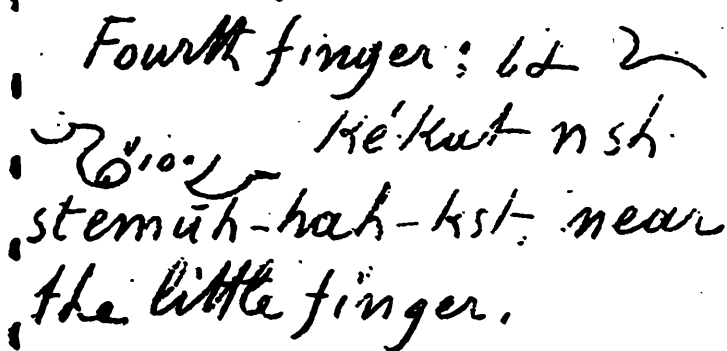 Fourth finger:
ké·kut n sh
stemūh-hah-kst. near
the little finger.